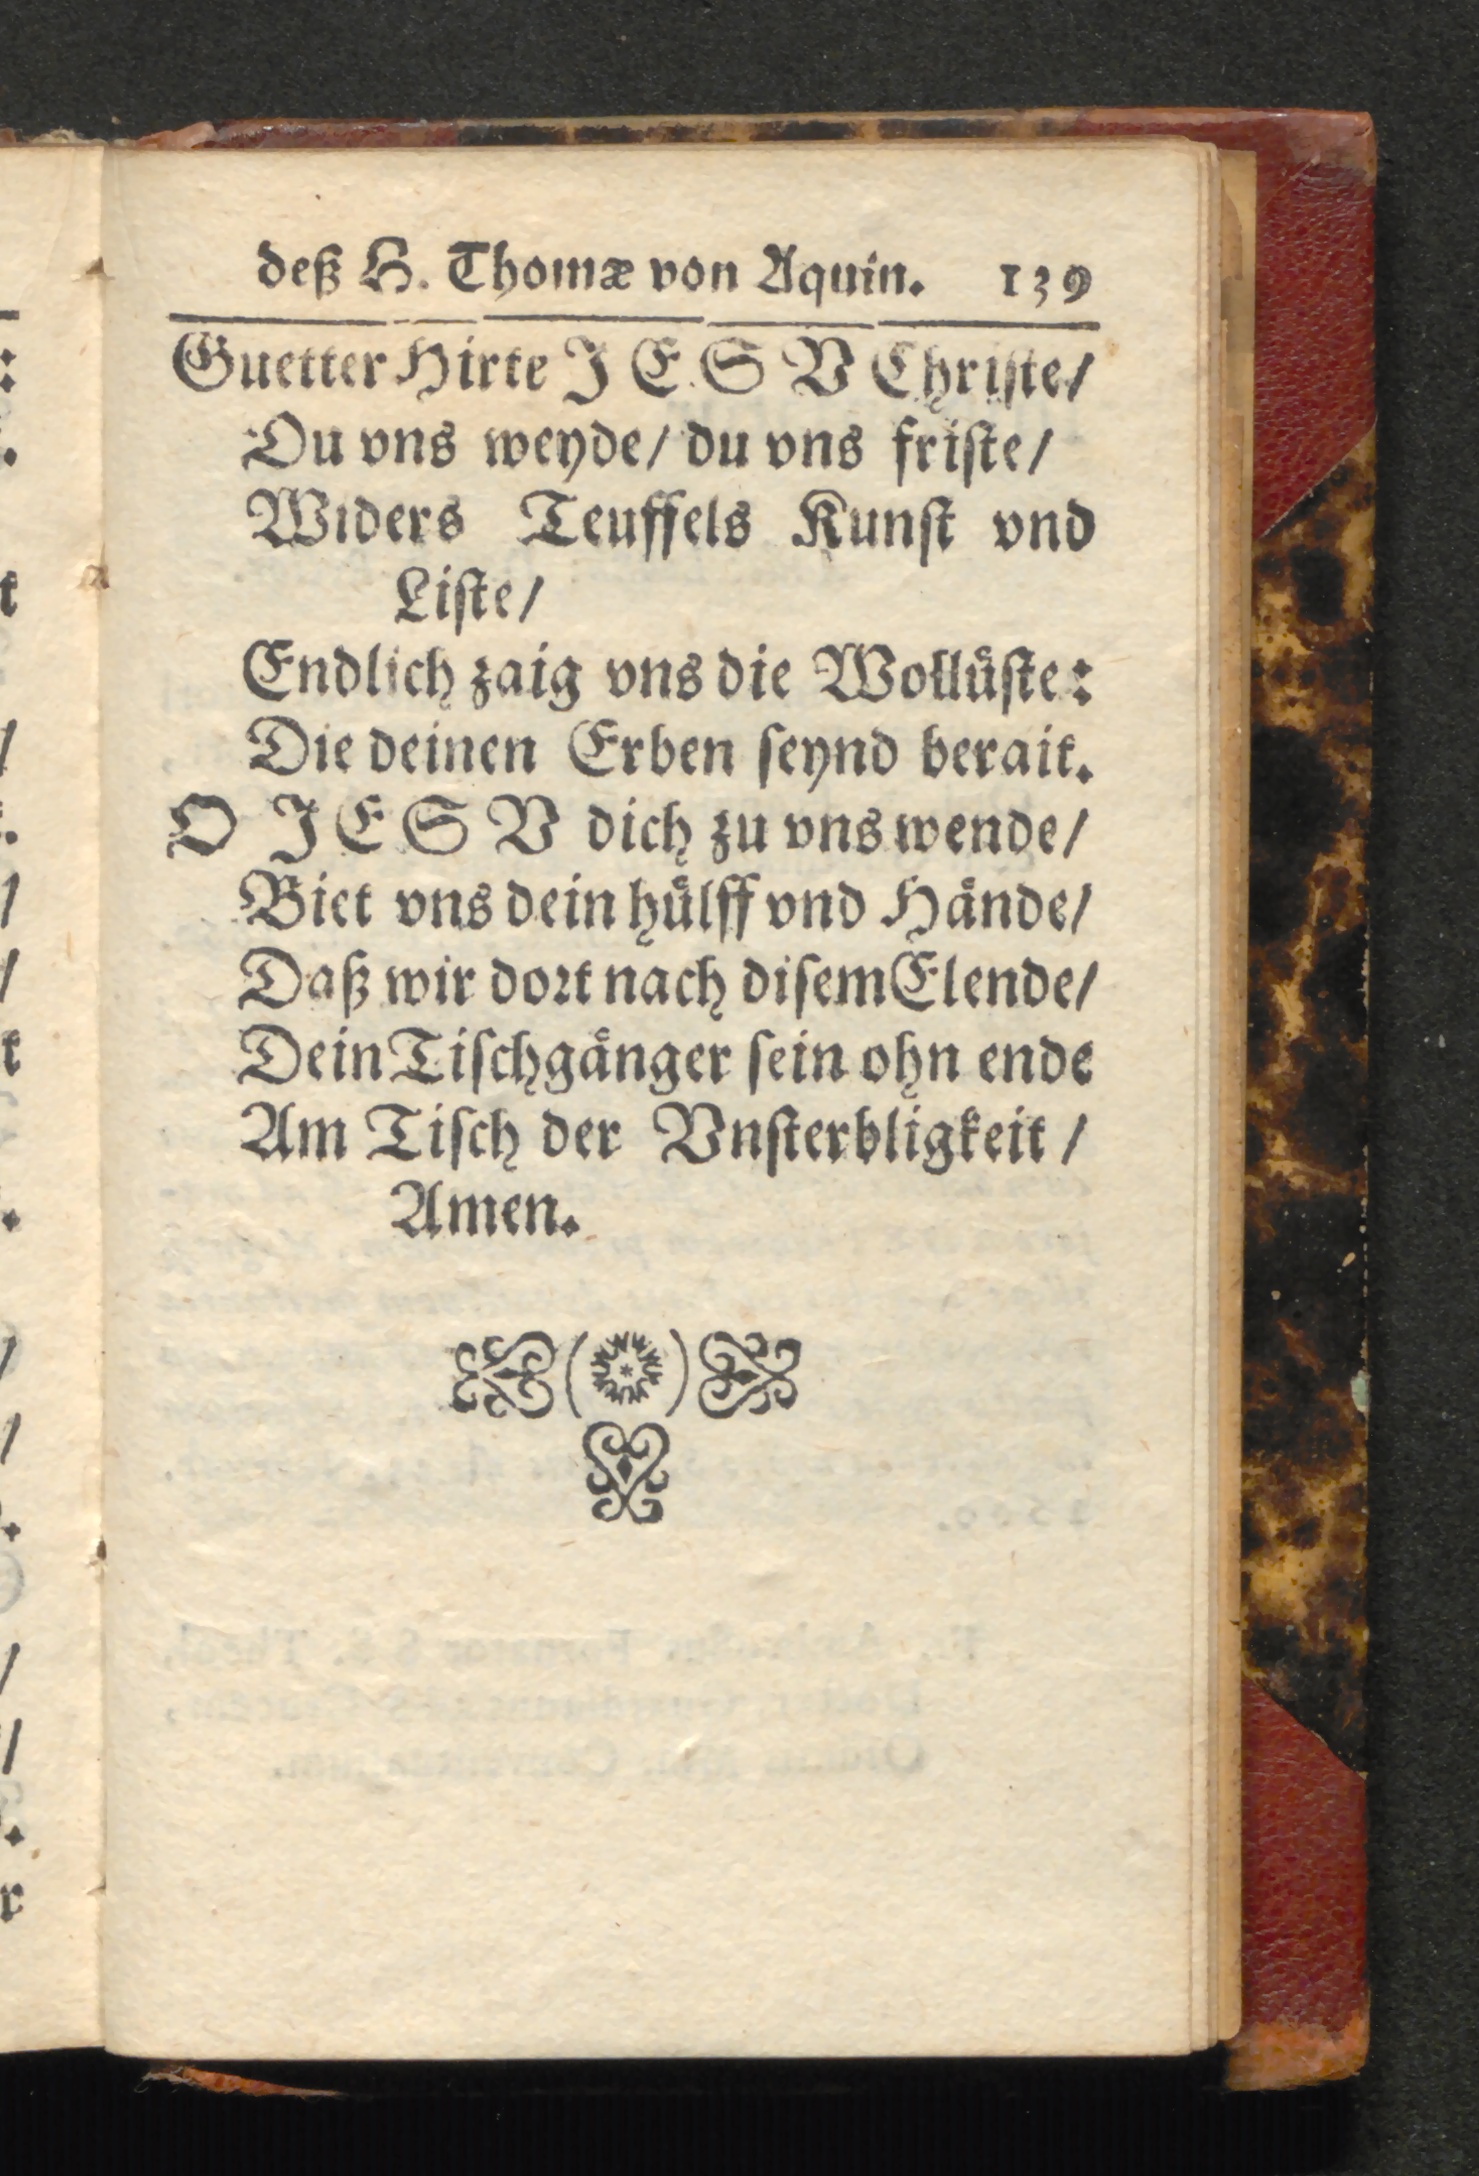 deß H. Thomæ von Aquin. 139
Guetter Hirte JESV Christe/
Du vns weyde/ du vns friste/
Widers Teuffels Kunst vnd
Liste/
Endlich zaig vns die Wollůste:
Die deinen Erben seynd berait.
O JESV dich zu vns wende/
Biet vns dein hůlff vnd Hånde/
Daß wir dort nach disem Elende/
Dein Tischgånger sein ohn ende
Am Tisch der Vnsterbligkeit/
Amen.